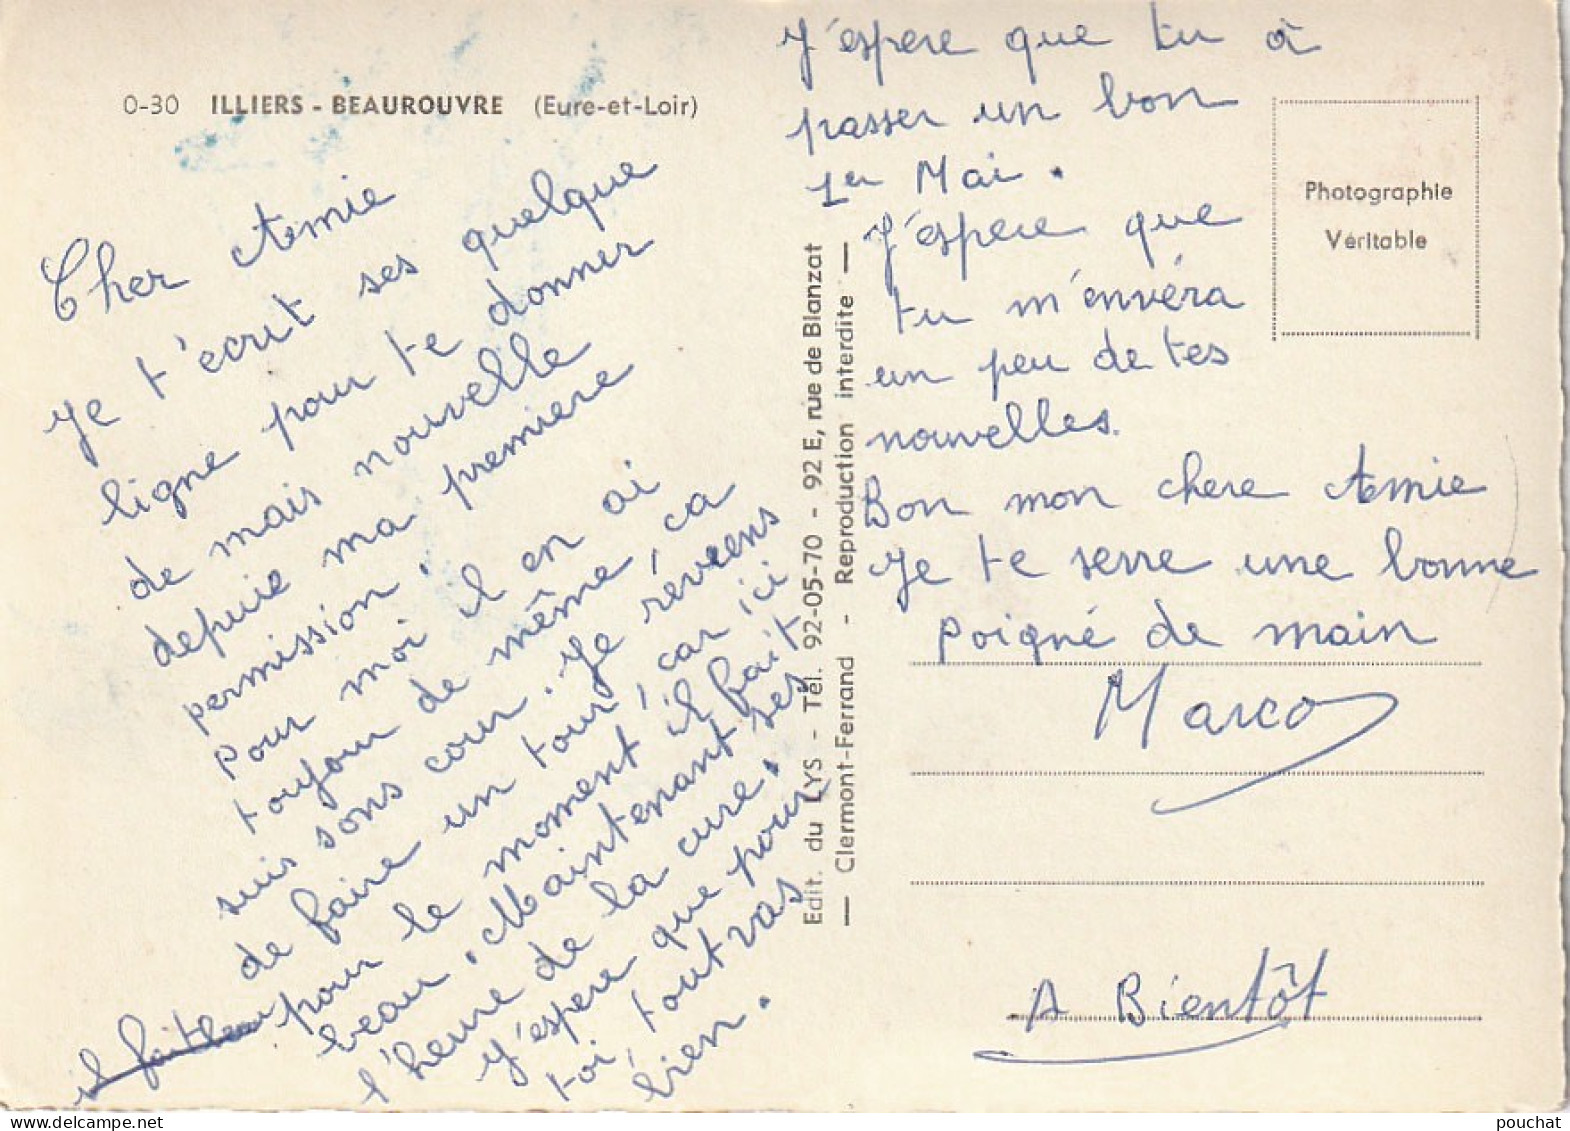 0-30 ILLIERS - BEAUROUVRE (Eure-et-Loir)
Cher Amie
Je t'ecrit ses quelque
ligne pour te donner
de mais nouvelle
depuie ma premiere
permission.
Pour moi il en ai
toujour de même, ca
suis sons cour. Je reviens
de faire un tour, car ici
pour le moment il fait
beau. Maintenant ses
l'heure de la cure.
J'espere que pour
toi, tout vas
bien.
il fait beau
Edit. du LYS - Tél. 92-05-70 - 92 E, rue de Blanzat
— Clermont-Ferrand - Reproduction interdite —
J'espere que tu à
passer un bon
1er Mai.
J'espere que
tu m'envéra
un peu de tes
nouvelles.
Bon mon chere Amie
Je te serre une bonne
poigné de main
Marco
A Bientôt
Photographie
Véritable
pouchat